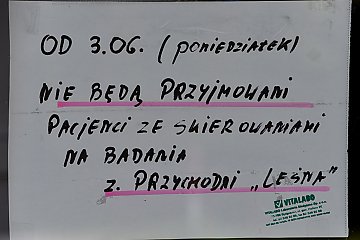 OD 3.06. (PONIEDZIAŁEK)
NIE BĘDĄ PRZYJMOWANI
PACJENCI ZE SKIEROWANIAMI
NA BADANIA
Z. PRZYCHODNI „LEŚNA”
VITALABO